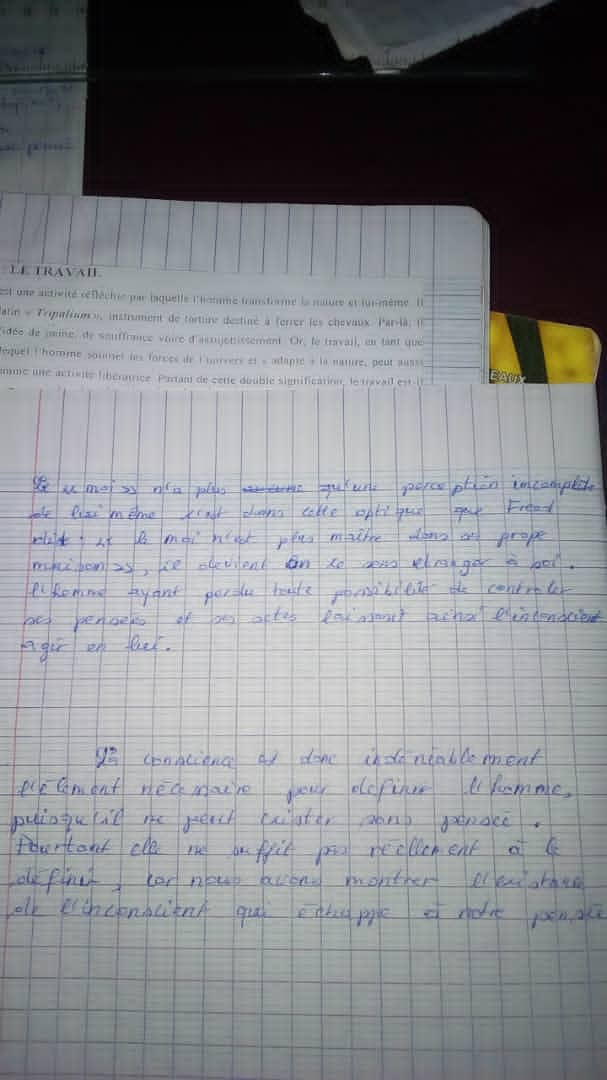 LE TRAVAIL
est une activité réfléchie par laquelle l'homme transforme la nature et lui-même. Il
latin « Tripalium », instrument de torture destiné à ferrer les chevaux. Par-là, il
l'idée de peine, de souffrance voire d'assujetissement. Or, le travail, en tant que
lequel l'homme soumet les forces de l'univers et « adapte » la nature, peut aussi
comme une activité libératrice. Partant de cette double signification, le travail est-il
EAUX
Le « moi » n'a plus qu'une perception incomplète
de lui même c'est dans cette optique que Freud
dit : « le moi n'est plus maître dans sa prope
maison », il devient en ce sens etranger à soi.
l'homme ayant perdu toute possibilité de controler
ses pensées et ses actes laissant ainsi l'inconscient
agir en lui.
La conscience est donc indéniablement
l'élement nécessaire pour definir l'homme,
puisqu'il ne peut exister sans pensée.
Pourtant elle ne suffit pas réellement à le
définir, car nous avons montrer l'existance
de l'inconscient qui échappe à notre pensée